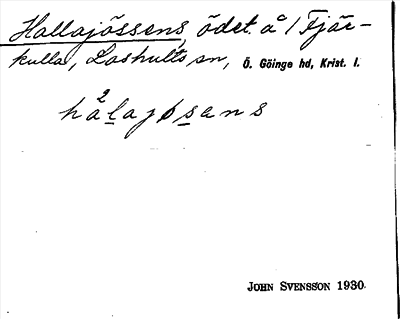 Hallajössens, ödet. å 1 Fjär-
kulla, Loshults sn, Ö. Göinge hd, Krist. l.
ha²lajøsans
JOHN SVENSSON 1930.